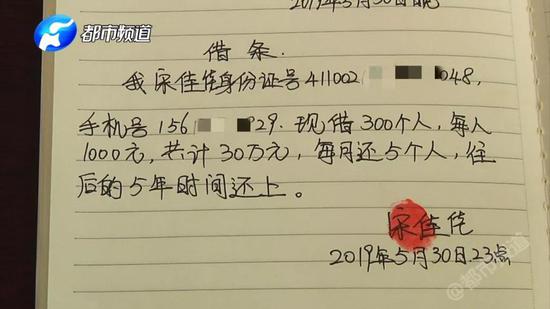 2019年5月30日晚
都市频道
借条.
我宋佳佗身份证号411002 048,
手机号156 929.现借300个人,每人
1000元,共计30万元,每月还5个人,往
后的5年时间还上。
宋佳佗
2019年5月30日.23点
@都市频道